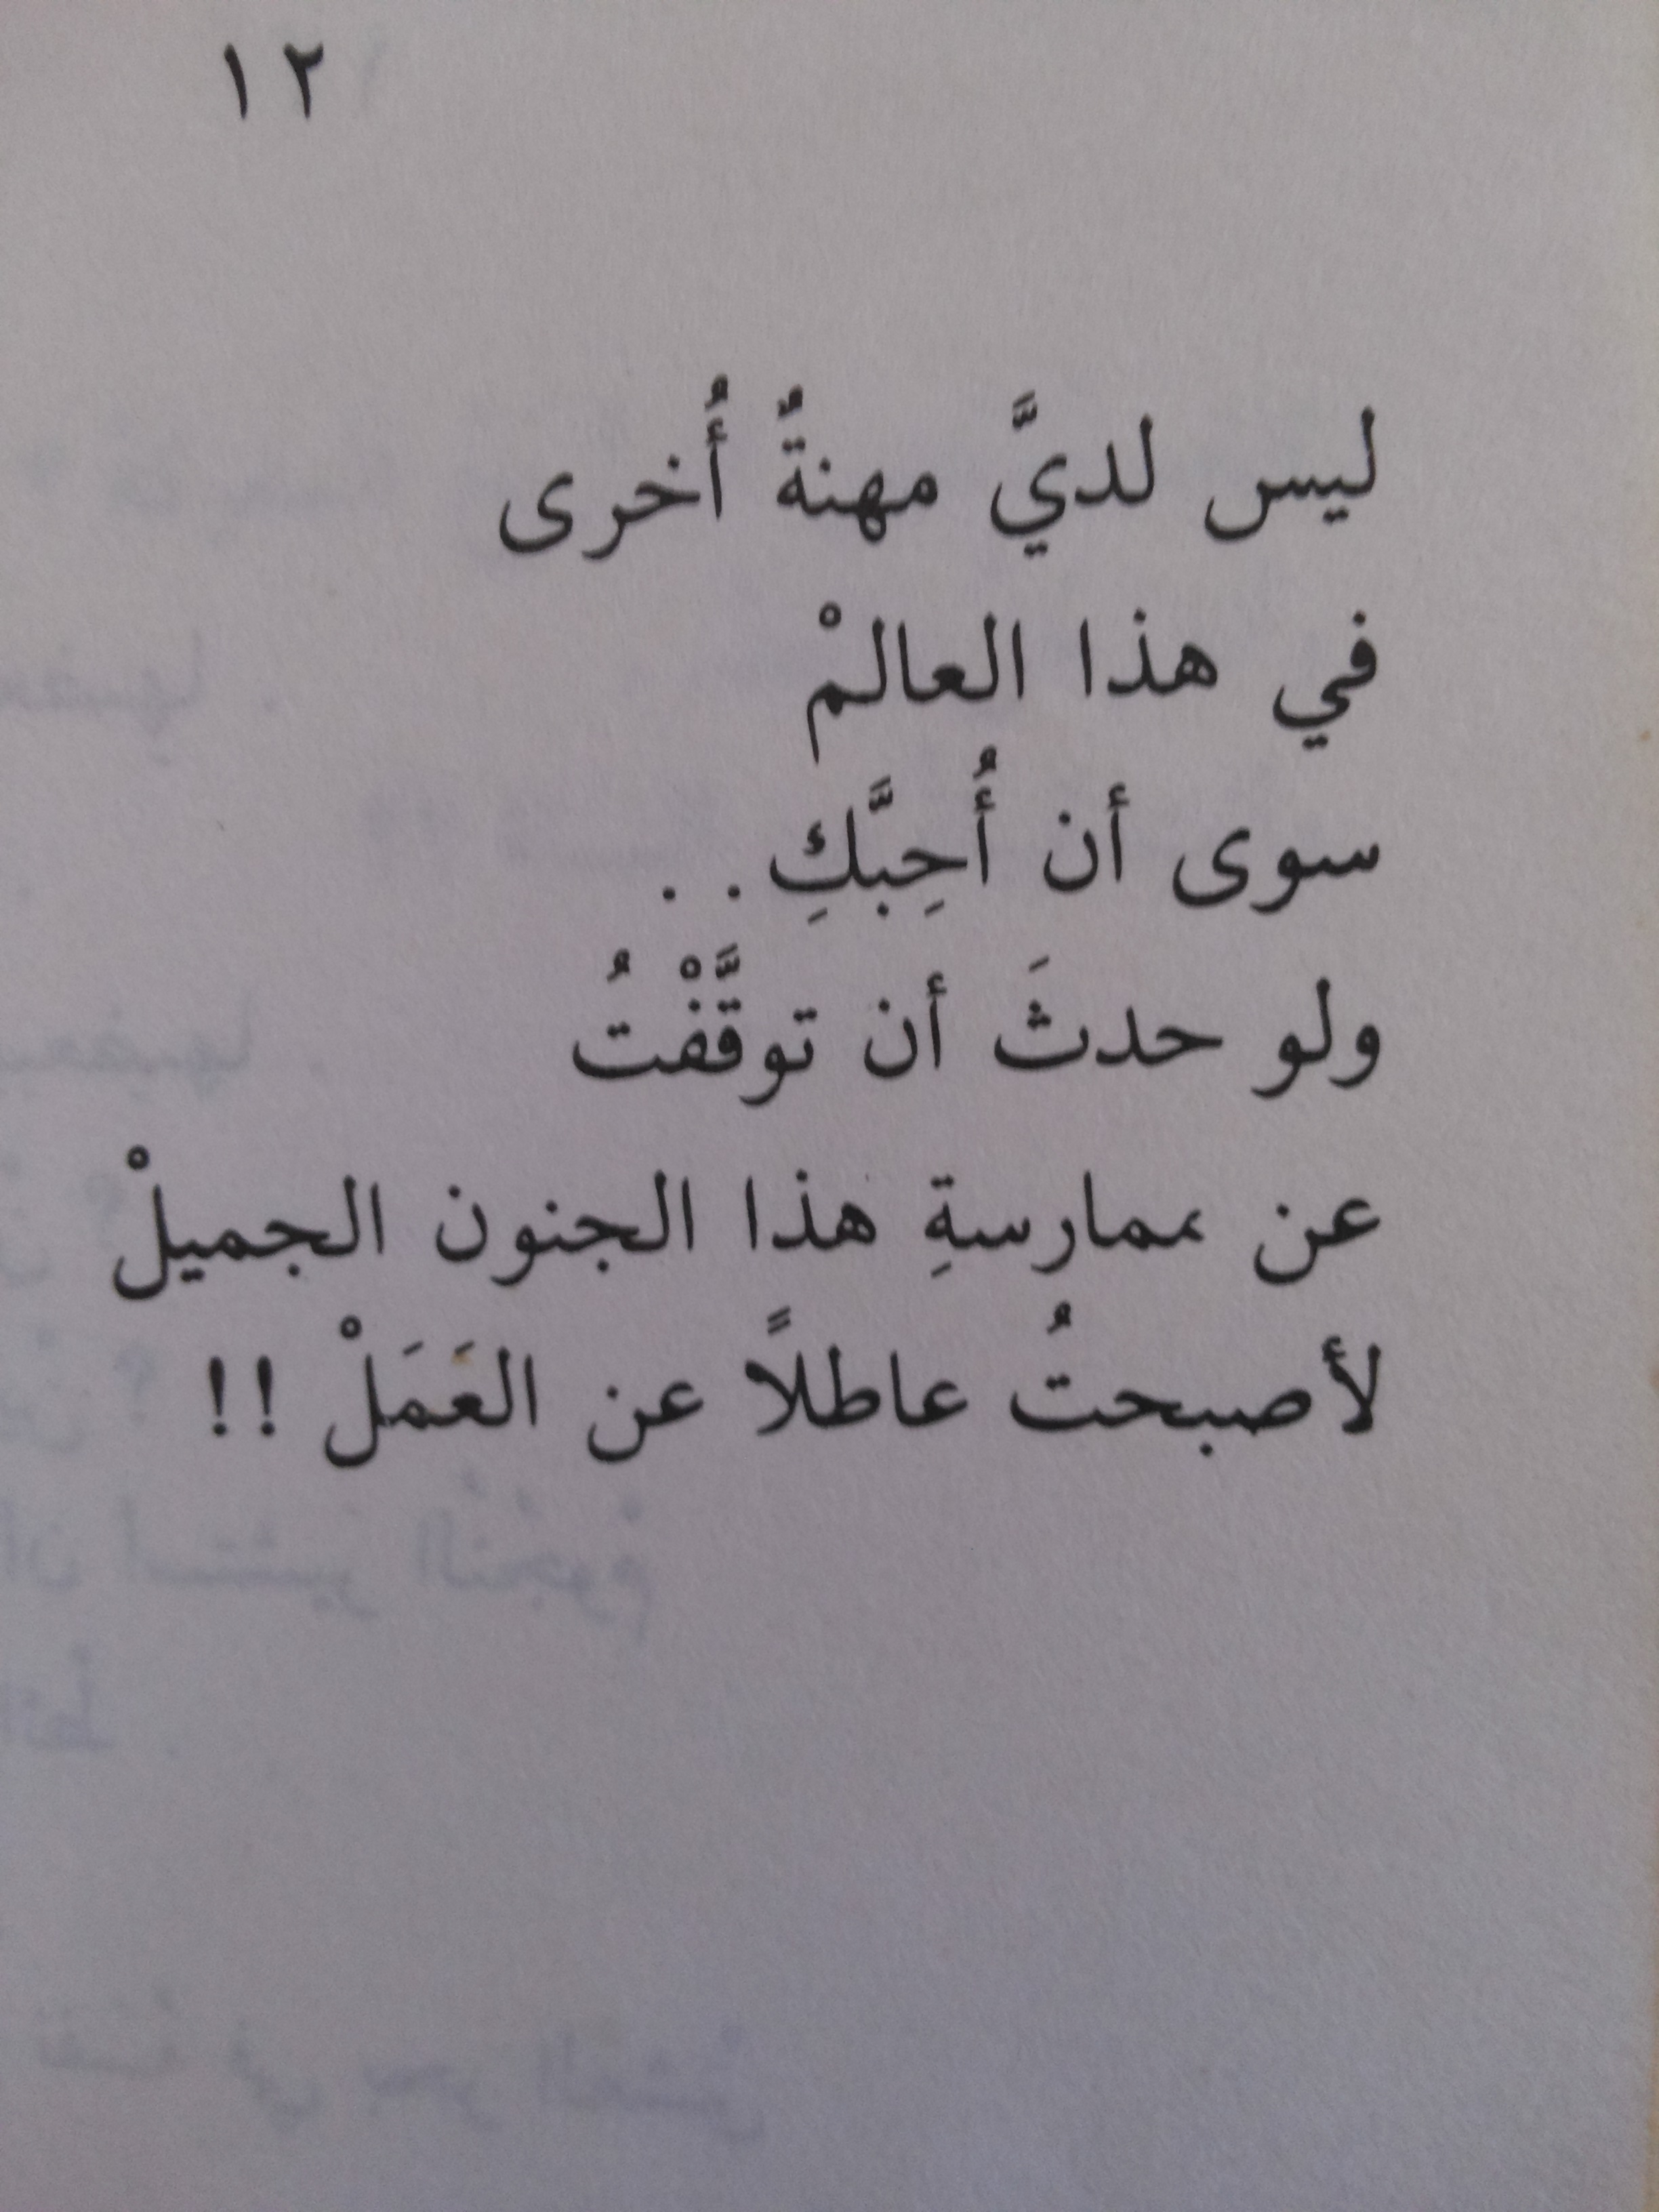 ١٢
ليس لديَّ مهنةٌ أُخرى
في هذا العالمْ
سوى أن أُحِبَّكِ . .
ولو حدثَ أن توقَّفْتُ
عن ممارسةِ هذا الجنون الجميلْ
لأصبحتُ عاطلاً عن العَمَلْ !!